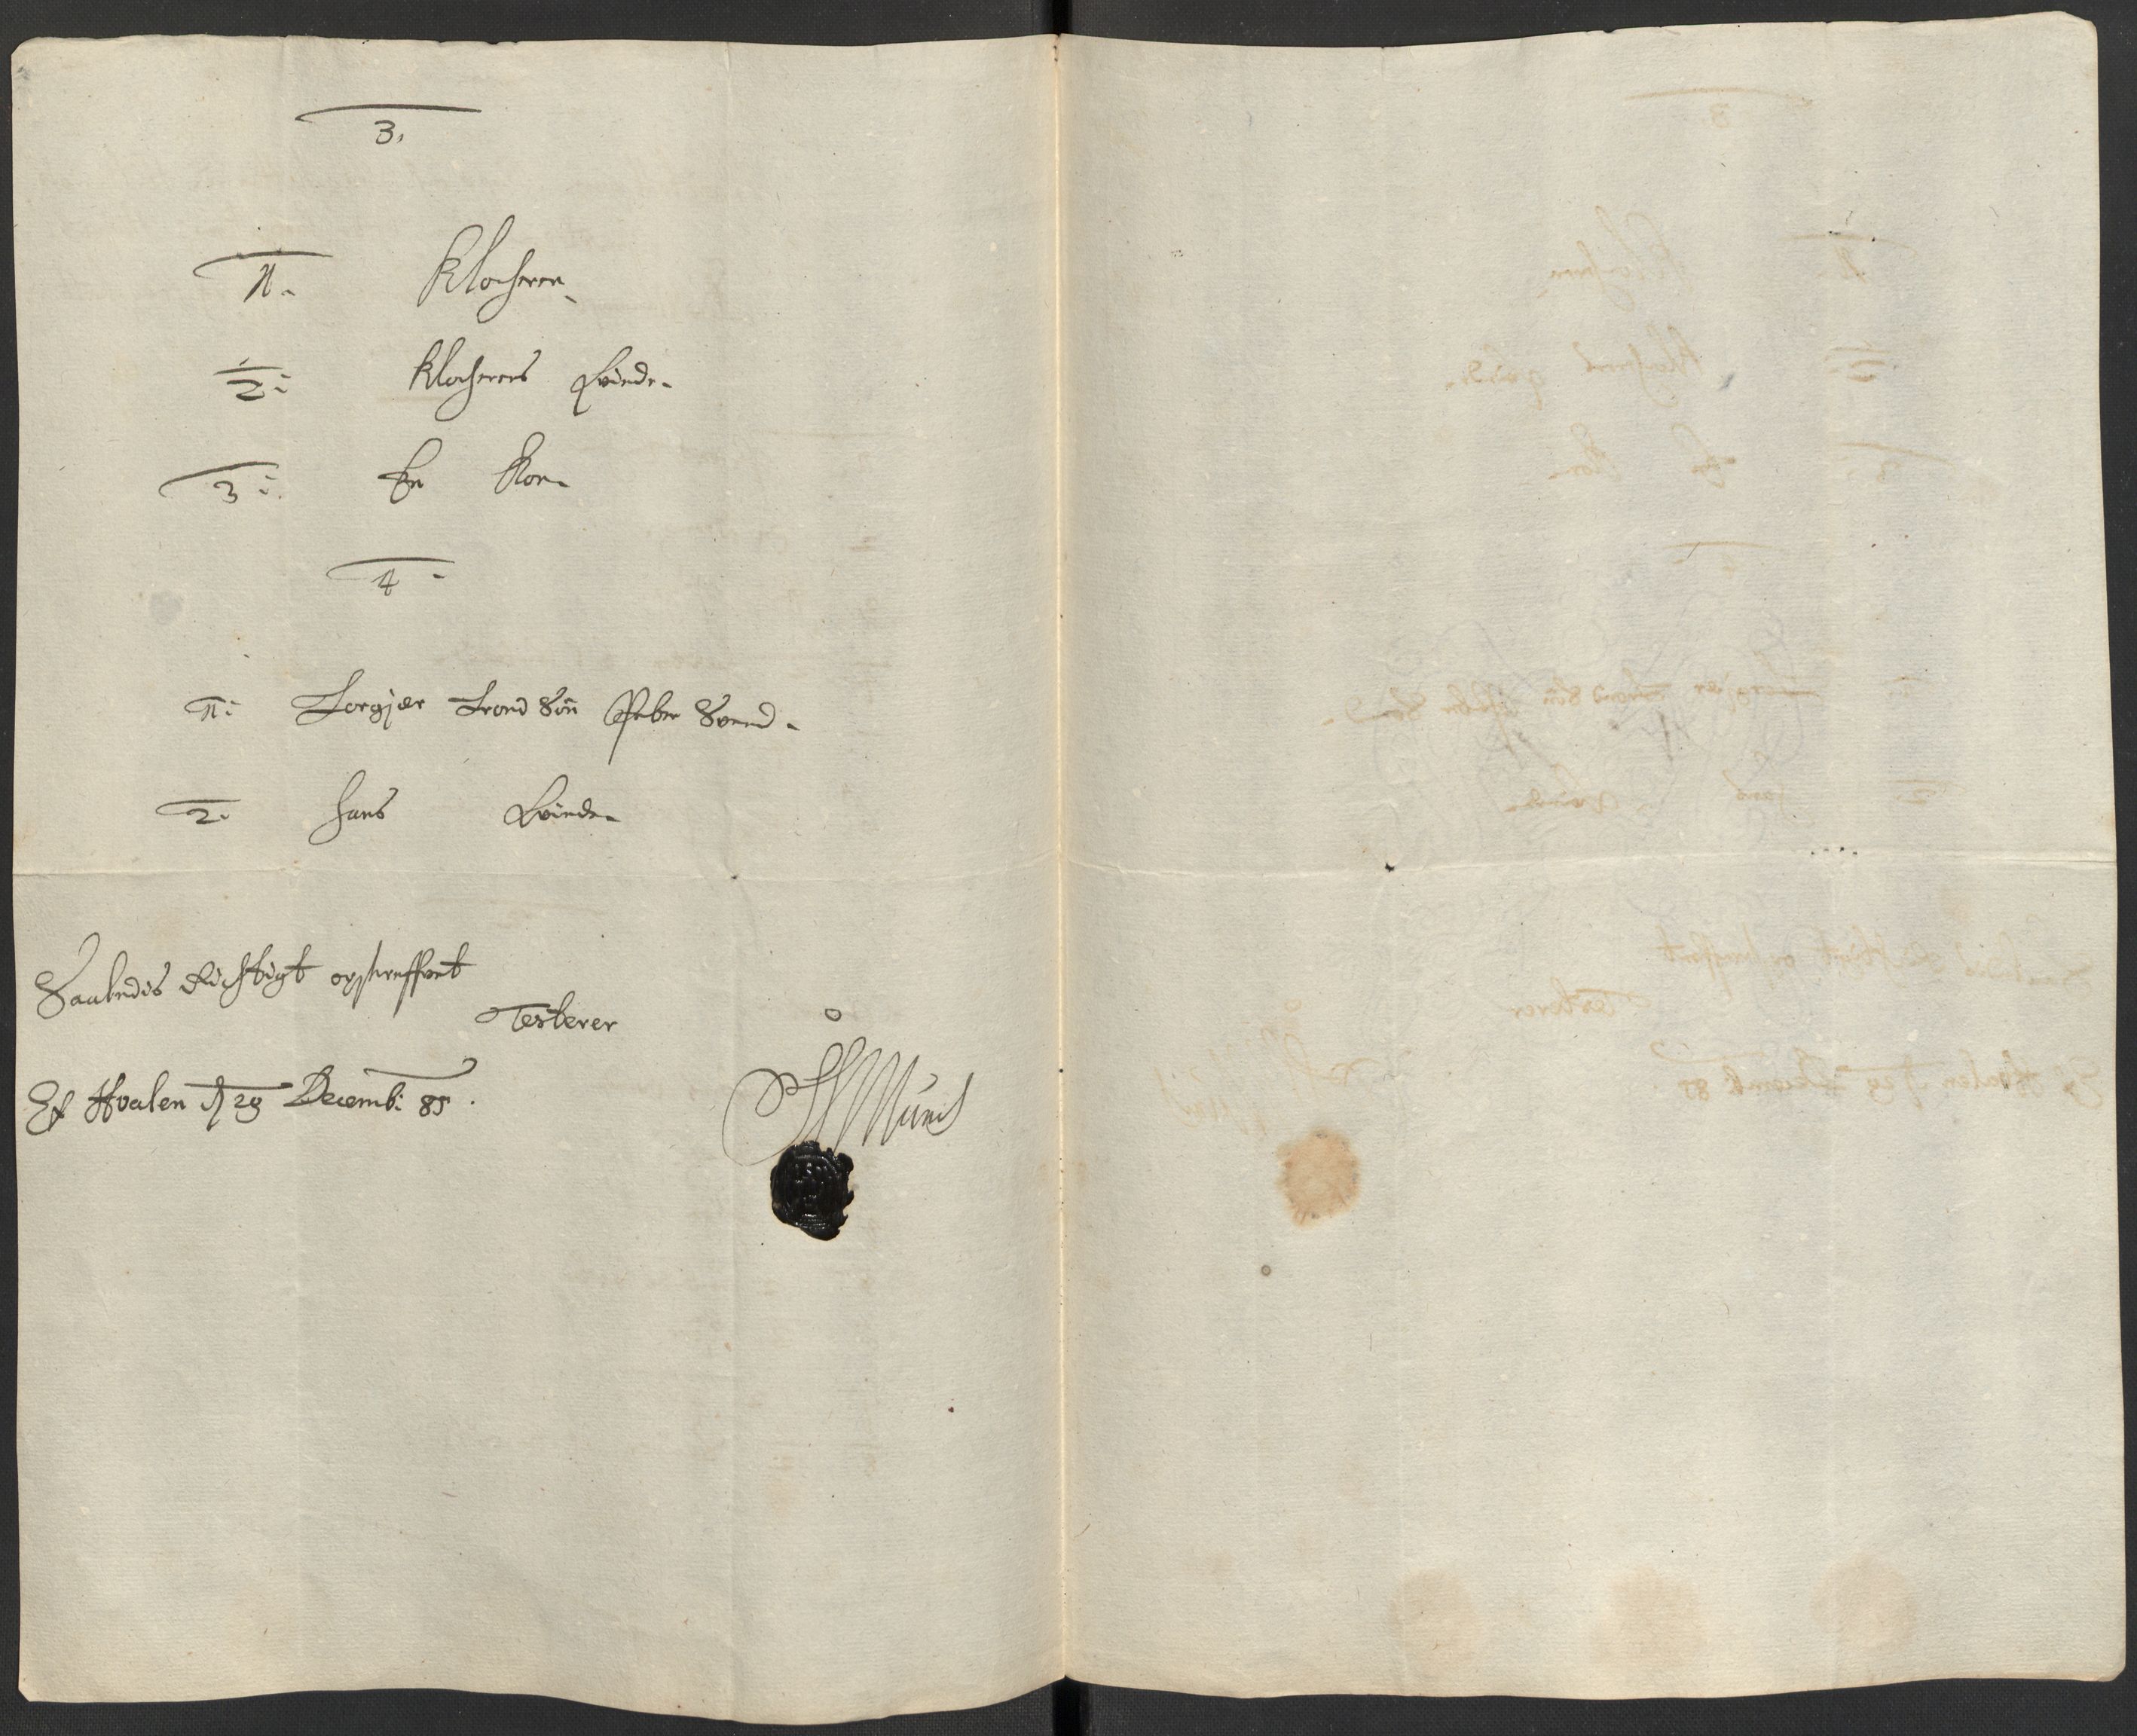 3.
1. Klocheren
2: Klocherens Qvinde
3: En Kone
4
1: Torgjær Trond Søn Peber Svend
2. hans Qvinde
Saaledis Richtigt opskreffvet
Testerer
Ex Hvalen d 29 Decemb: 85.
Munch